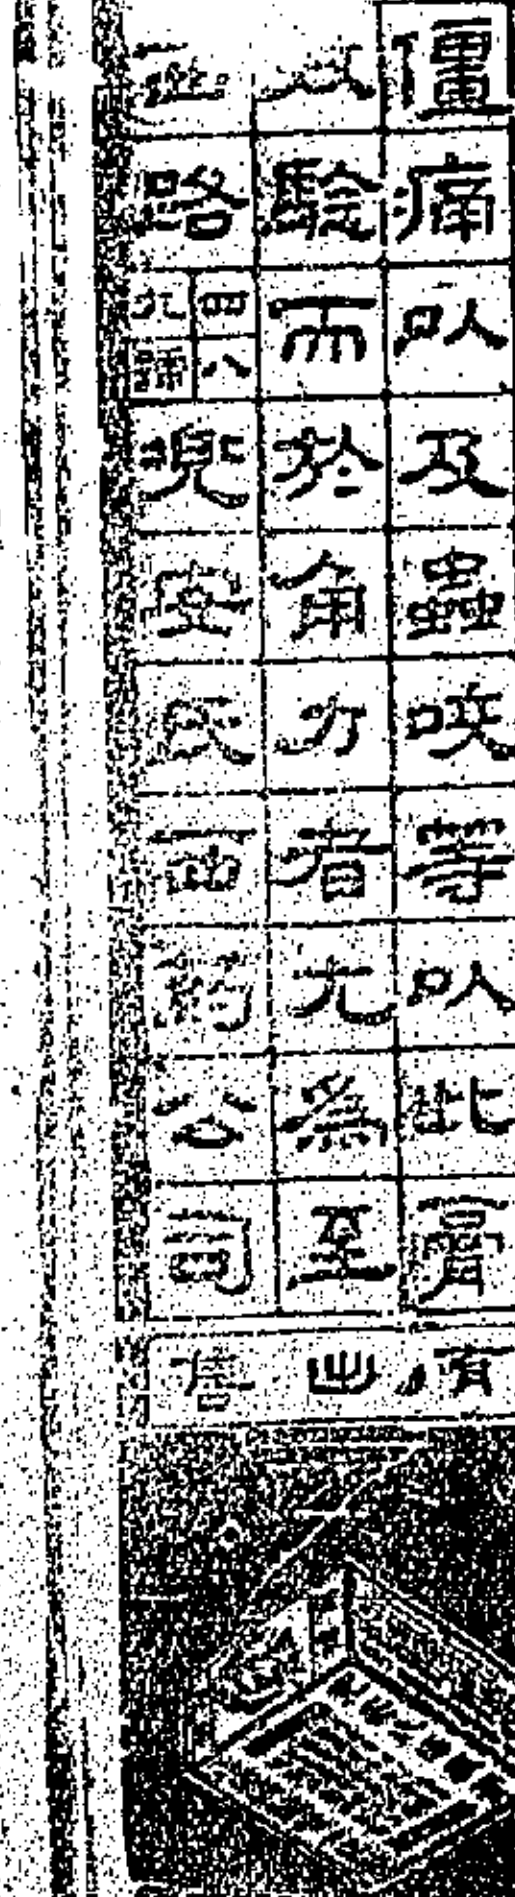 僵痛以及蟲咬等以此膏有
驗而於角力者尤為至
路四八九號兜安氏西藥公司售